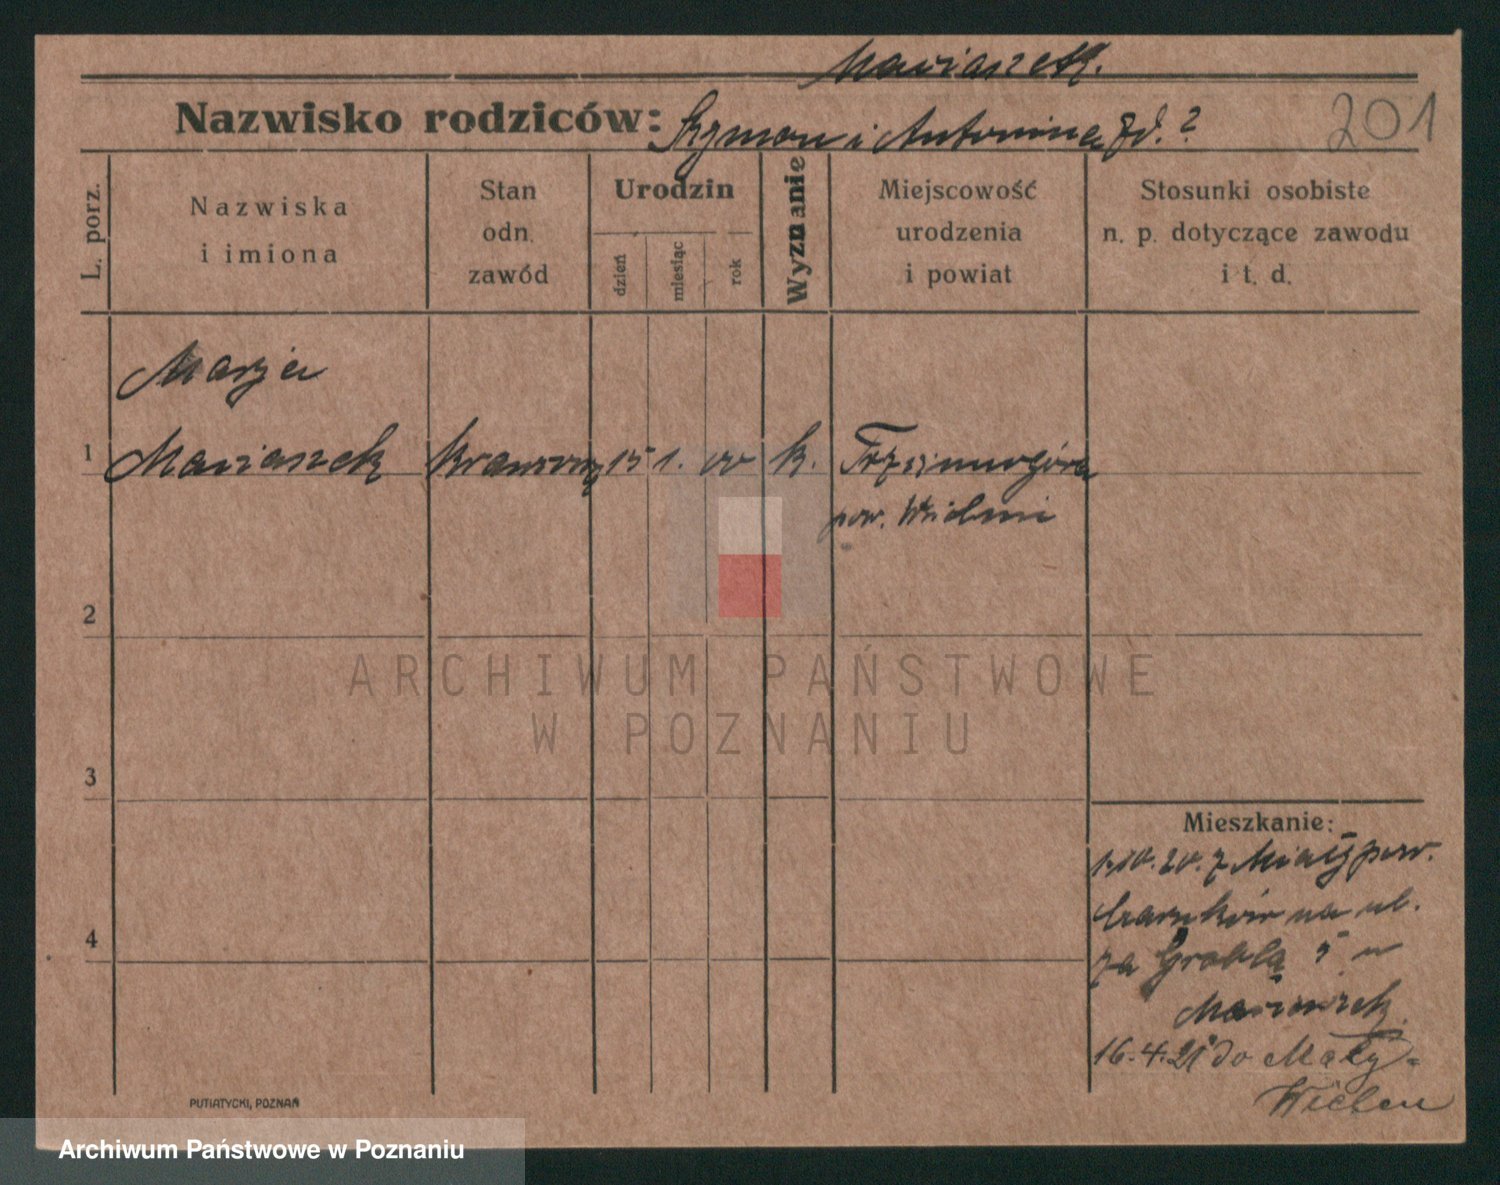 Maciaszek.
Nazwisko rodziców: Szymon i Antonina zd. ?
201
L. porz.
Nazwiska
i imiona
Stan
odn.
zawód
Urodzin
dzień
miesiąc
rok
Wyznanie
Miejscowość
urodzenia
i powiat
Stosunki osobiste
n. p. dotyczące zawodu
i t. d.
Marja
1 Maciaszek 15 1. 00 k.
pow.
2
ARCHIWUM PAŃSTWOWE
W POZNANIU
3
4
Mieszkanie:
1.10.20. z Miały pow.
Czarnków na ul.
za Groblą 5 u
16.4.21 do Mały-
Wieleń
PUTIATYCKI, POZNAŃ
Archiwum Państwowe w Poznaniu